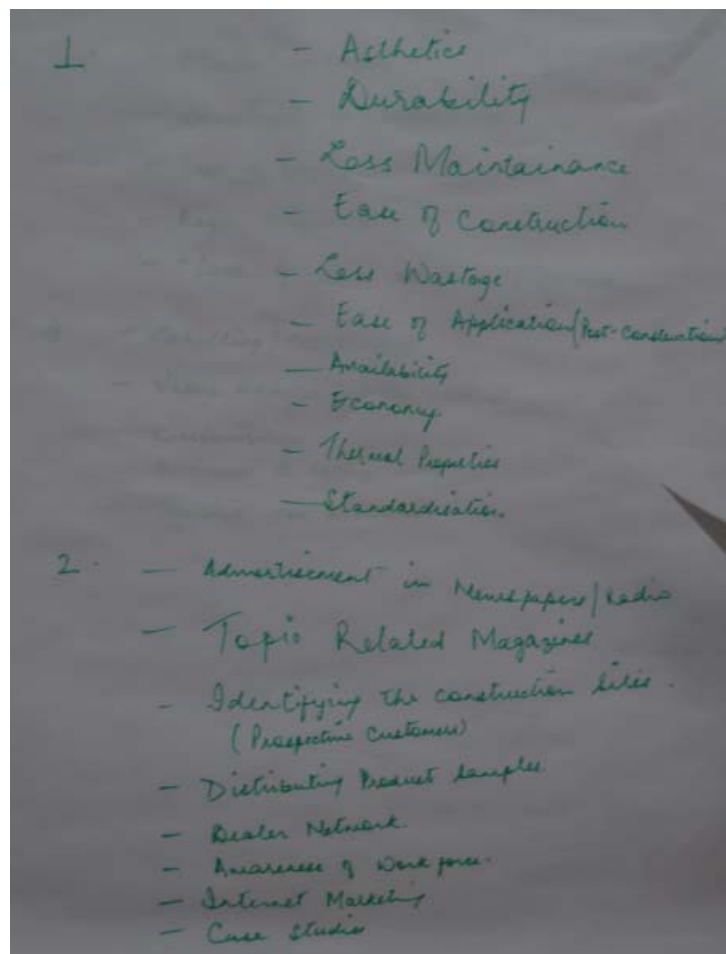 1 - Asthetics
- Durability
- Less Maintainance
- Ease of Construction
- Less Wastage
- Ease of Application (Post-Construction)
- Availability
- Economy.
- Thermal Properties
- Standardisation.
2. - Advertisement in Newspapers/Radio
- Topic Related Magazines
- Identifying the construction sites.
(Prospective Customers)
- Distributing Product samples.
- Dealer Network.
- Awareness of work force.
- Internet Marketing
- Case studies